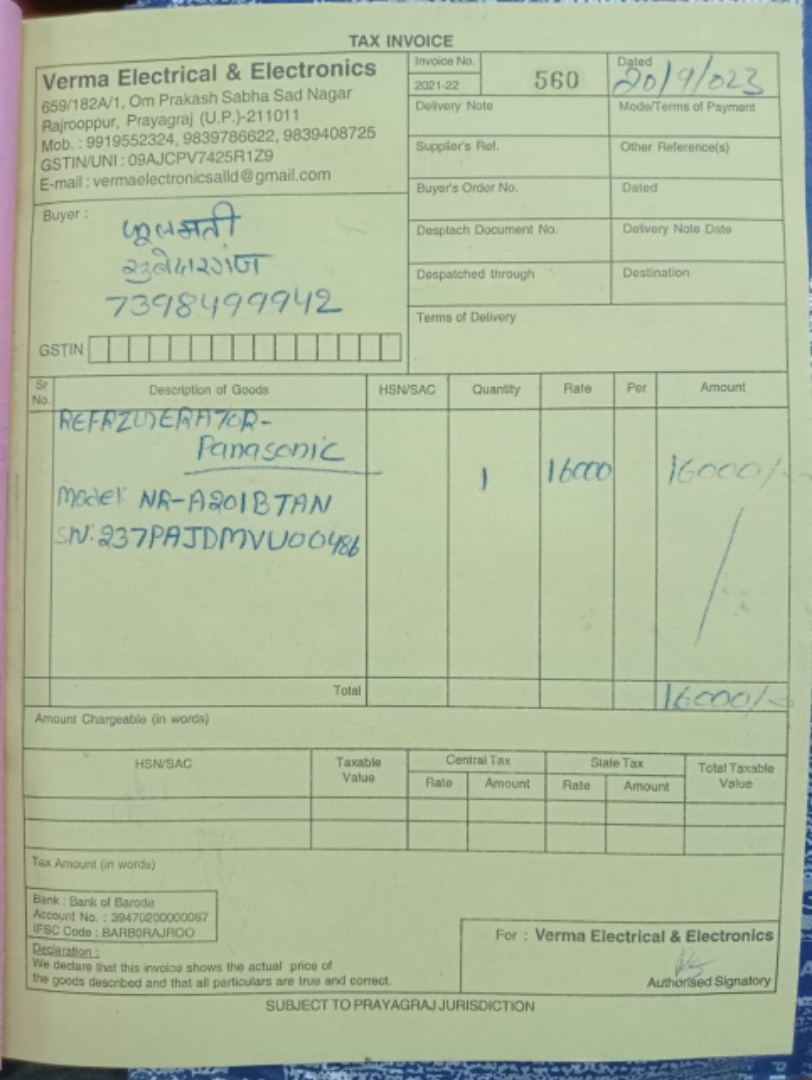 TAX INVOICE
Verma Electrical & Electronics
659/182A/1, Om Prakash Sabha Sad Nagar
Rajrooppur, Prayagraj (U.P.)-211011
Mob. : 9919552324, 9839786622, 9839408725
GSTIN/UNI : 09AJCPV7425R1Z9
E-mail : vermaelectronicsalld@gmail.com
Invoice No.
2021-22 560
Dated
20/9/023
Delivery Note Mode/Terms of Payment
Supplier's Ref. Other Reference(s)
Buyer's Order No. Dated
Desptach Document No. Delivery Note Date
Despatched through Destination
Terms of Delivery
Buyer :
फूलमती
सुबेदारगंज
7398499942
GSTIN
Sr No. Description of Goods HSN/SAC Quantity Rate Per Amount
REFRIGERATOR-
Panasonic
1 16000 16000/-
Model NR-A201BTAN
SN: 237PAJDMVU00486
Total 16000/-
Amount Chargeable (in words)
HSN/SAC Taxable Value Central Tax State Tax Total Taxable Value
Rate Amount Rate Amount
Tax Amount (in words)
Bank : Bank of Baroda
Account No. : 39470200000067
IFSC Code : BARB0RAJROO
Declaration :
We declare that this invoice shows the actual price of
the goods described and that all particulars are true and correct.
For : Verma Electrical & Electronics
Authorised Signatory
SUBJECT TO PRAYAGRAJ JURISDICTION